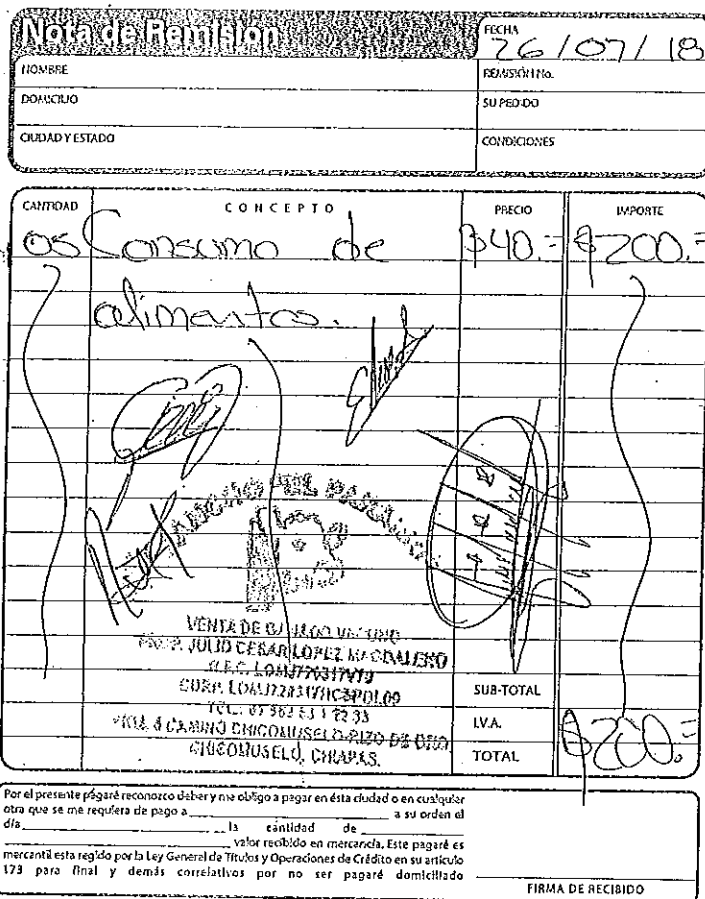 Nota de Remisión
FECHA
26/07/18
NOMBRE
REMISIÓN No.
DOMICILIO
SU PEDIDO
CIUDAD Y ESTADO
CONDICIONES
CANTIDAD CONCEPTO PRECIO IMPORTE
05 Consumo de $40.= $200.=
alimentos.
VENTA DE GANADO VACUNO
PROP. JULIO CESAR LOPEZ MAGDALENO
R.F.C.
CURP.
TEL.
CAMINO CHICOMUSELO-RIZO DE ORO
CHICOMUSELO, CHIAPAS.
SUB-TOTAL
I.V.A.
TOTAL $200.=
Por el presente pagaré reconozco deber y me obligo a pagar en ésta ciudad o en cualquier
otra que se me requiera de pago a a su orden el
día la cantidad de
valor recibido en mercancía. Este pagaré es
mercantil esta regido por la Ley General de Títulos y Operaciones de Crédito en su artículo
173 para final y demás correlativos por no ser pagaré domiciliado
FIRMA DE RECIBIDO